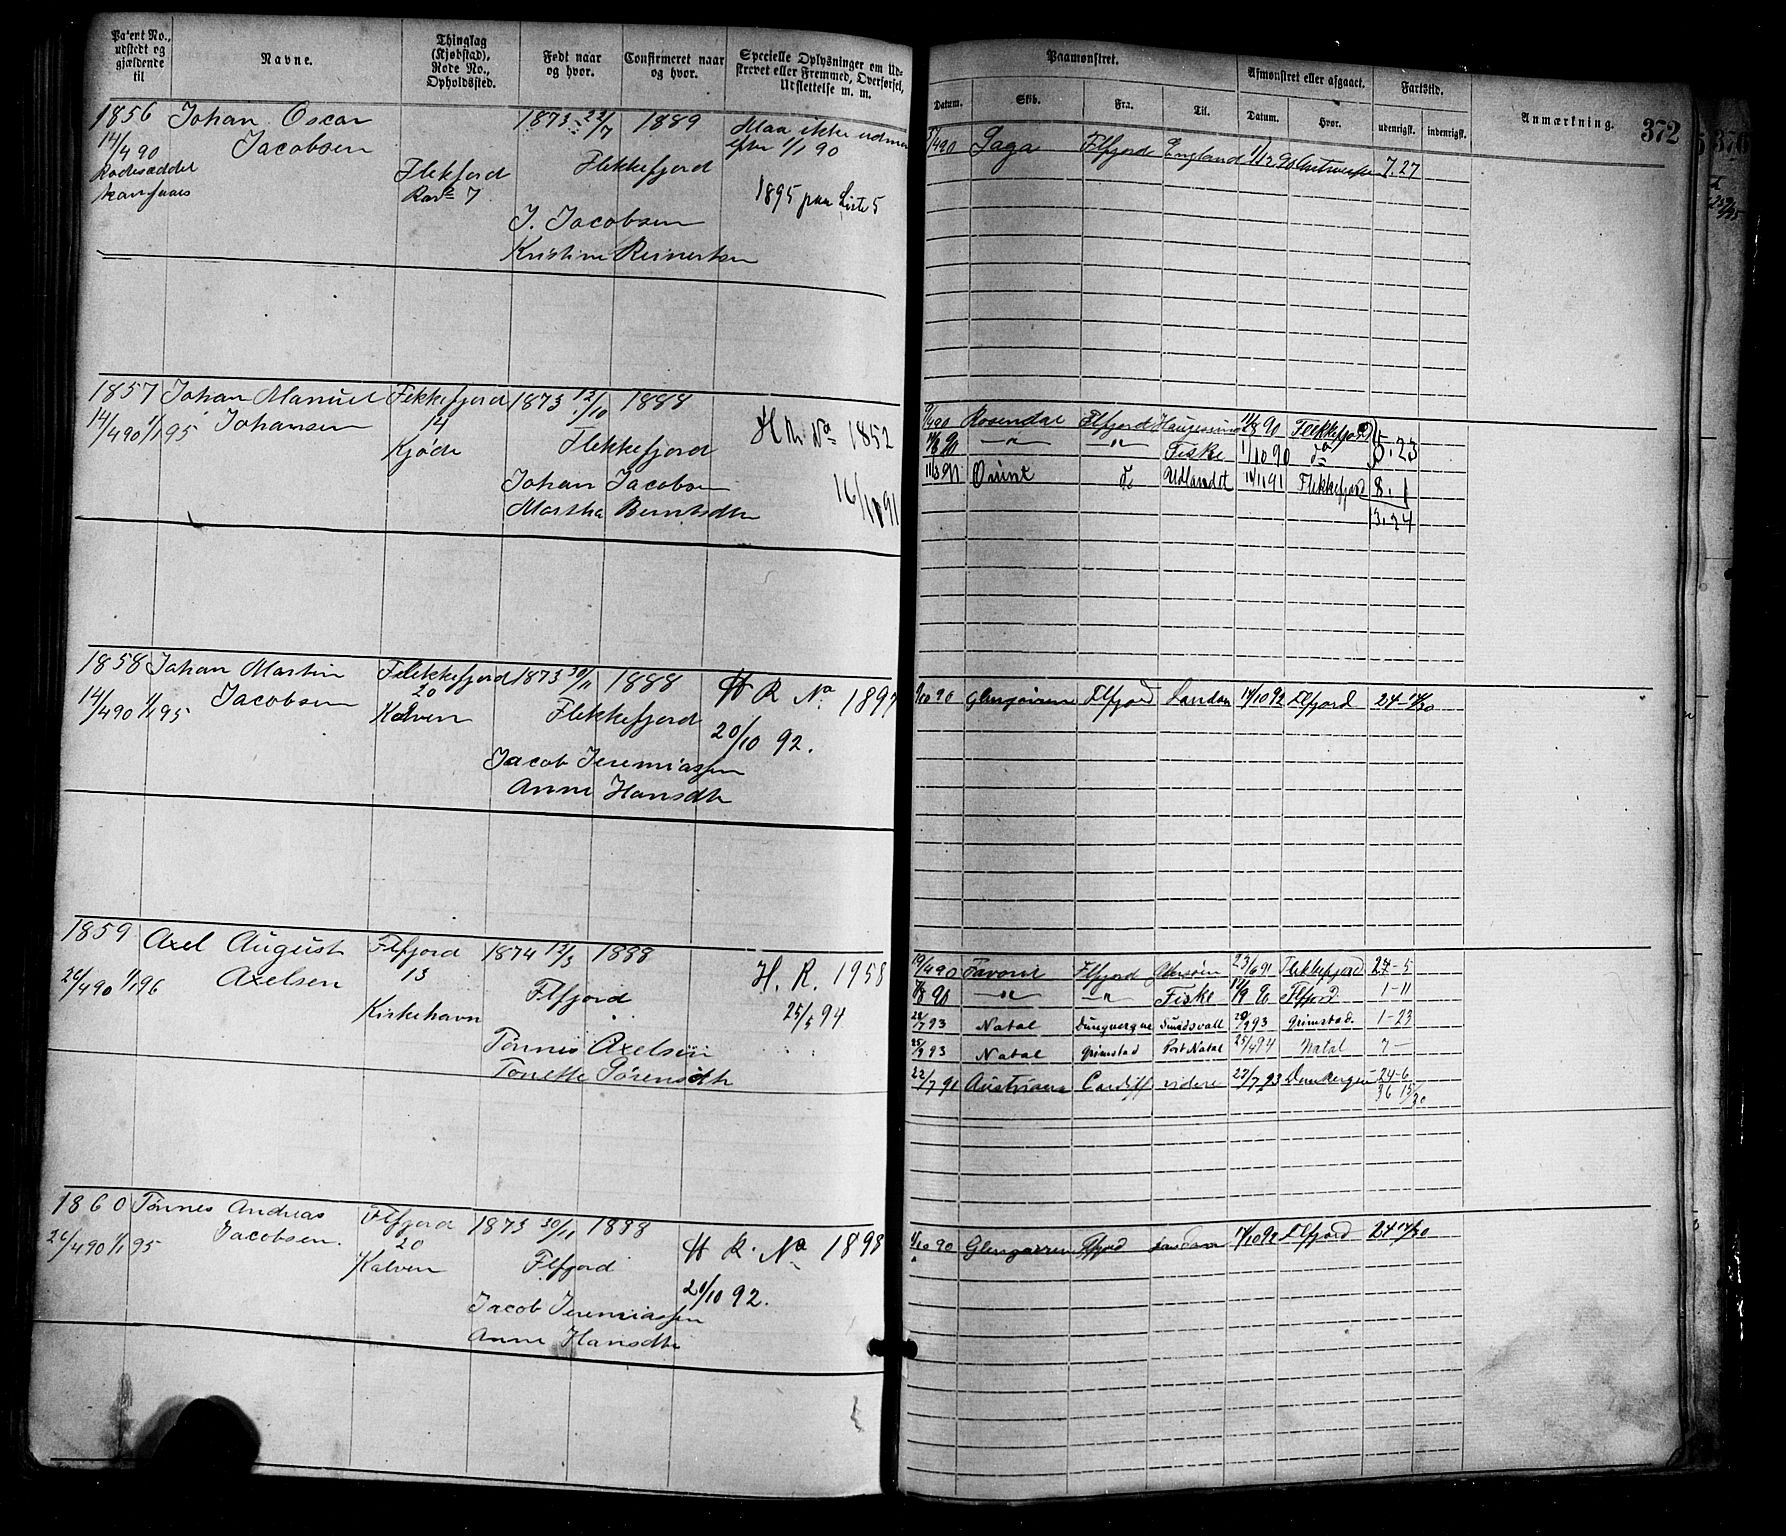 Patent No., udstedt og gjældende til
Navne.
Thinglag (Kjøbstad), Rode No., Opholdssted.
Født naar og hvor.
Confirmeret naar og hvor.
Specielle Oplysninger om Udskrevet eller Fremmed, Overførsel, Udslettelse m. m.
Paamønstret.
Datum. Skib. Fra. Til.
Afmønstret eller afgaaet.
Datum. Hvor.
Fartstid.
udenrigsk. indenrigsk.
Anmærkning.
372
376
1856 Johan Oscar Jacobsen
14/4 90
Rodesæddel
kan faaes
Flekfjord
Rode 7
1873 22/7 1889
Flekkefjord
J. Jacobsen
Kristine Reinertsen
Maa ikke udm
efter 1/1 90
1895 paa Liste 5
Saga Flfjord England 1/12 90 Antwerpen 7.27
1857 Johan Manuel Johansen
14/4 90 1/1 95
Flekkefjord
14
Kjøde
1873 12/10 1888
Flekkefjord
Johan Jacobsen
Martha Berntsdtr
H R No 1852
16/11 91
9/4 90 Rosendal Flfjord Haugesund Flekkefjord
Fiske 1/10 90 do 5.23
Udlandet 14/11 91 Flekkefjord 8.1
13.24
1858 Johan Martin Jacobsen
14/4 90 1/1 95
Flekkefjord
20
Kalven
1873 30/11 1888
Flekkefjord
Jacob Jeremiassen
Anne Hansdtr
H R No 1897
20/10 92.
Flfjord London 14/10 92 Flfjord 24-14/30
1859 Axel August Axelsen
26/4 90 1/1 96
Flfjord
13
Kirkehavn
1874 12/3 1888
Flfjord
Tønnes Axelsen
Tonette Sørensdtr
H. R. 1958
25/5 94
19/4 90 Favorit Flfjord 23/6 91 Flekkefjord 27-5
7/8 90 Fiske Flfjord 1-11
Natal Sundsvall 93 Grimstad. 1-23
25/9 93 Natal Grimstad Port Natal 25/4 94 Natal 7-
22/7 91 Cardiff videre 22/7 93 24-6
36 15/30
1860 Tønnes Andreas Jacobsen.
26/4 90 1/1 95
Flfjord
20
Kalven
1873 30/11 1888
Flfjord
Jacob Jeremiassen
Anne Hansdtr
H R. No 1898
20/10 92.
Flfjord London 14/10 92 Flfjord 24 14/30